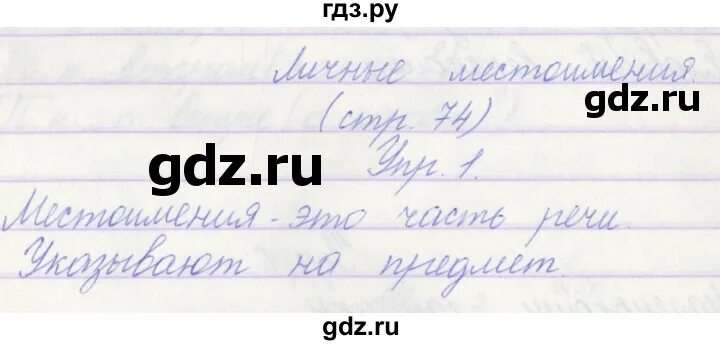 гдз.ру
Личные местоимения.
gdz.ru
(стр. 74)
gdz.ru
Упр. 1.
Местоимения - это часть речи.
Указывают на предмет.
gdz.ru